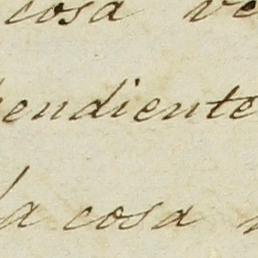 cosa ve
pendiente
la cosa